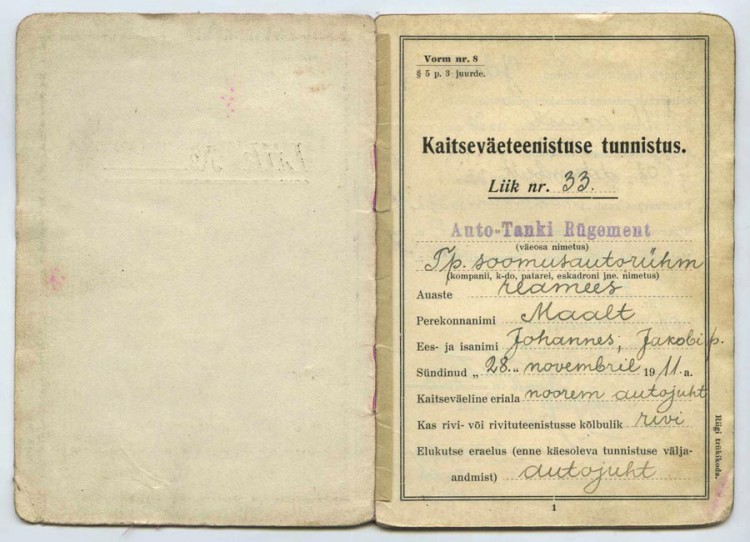 Vorm nr. 8
§ 5 p. 3 juurde.
Kaitseväeteenistuse tunnistus.
Liik nr. 33.
Auto-Tanki Rügement
(väeosa nimetus)
Tp. soomusautorühm
(kompanii, k-do, patarei, eskadroni jne. nimetus)
Auaste reamees
Perekonnanimi Maalt
Ees- ja isanimi Johannes, Jakobi p.
Sündinud „28.„ novembril 1911.a.
Kaitseväeline eriala noorem autojuht
Kas rivi- või rivituteenistusse kõlbulik rivi
Elukutse eraelus (enne käesoleva tunnistuse välja-
andmist) autojuht
Riigi trükikoda.
1